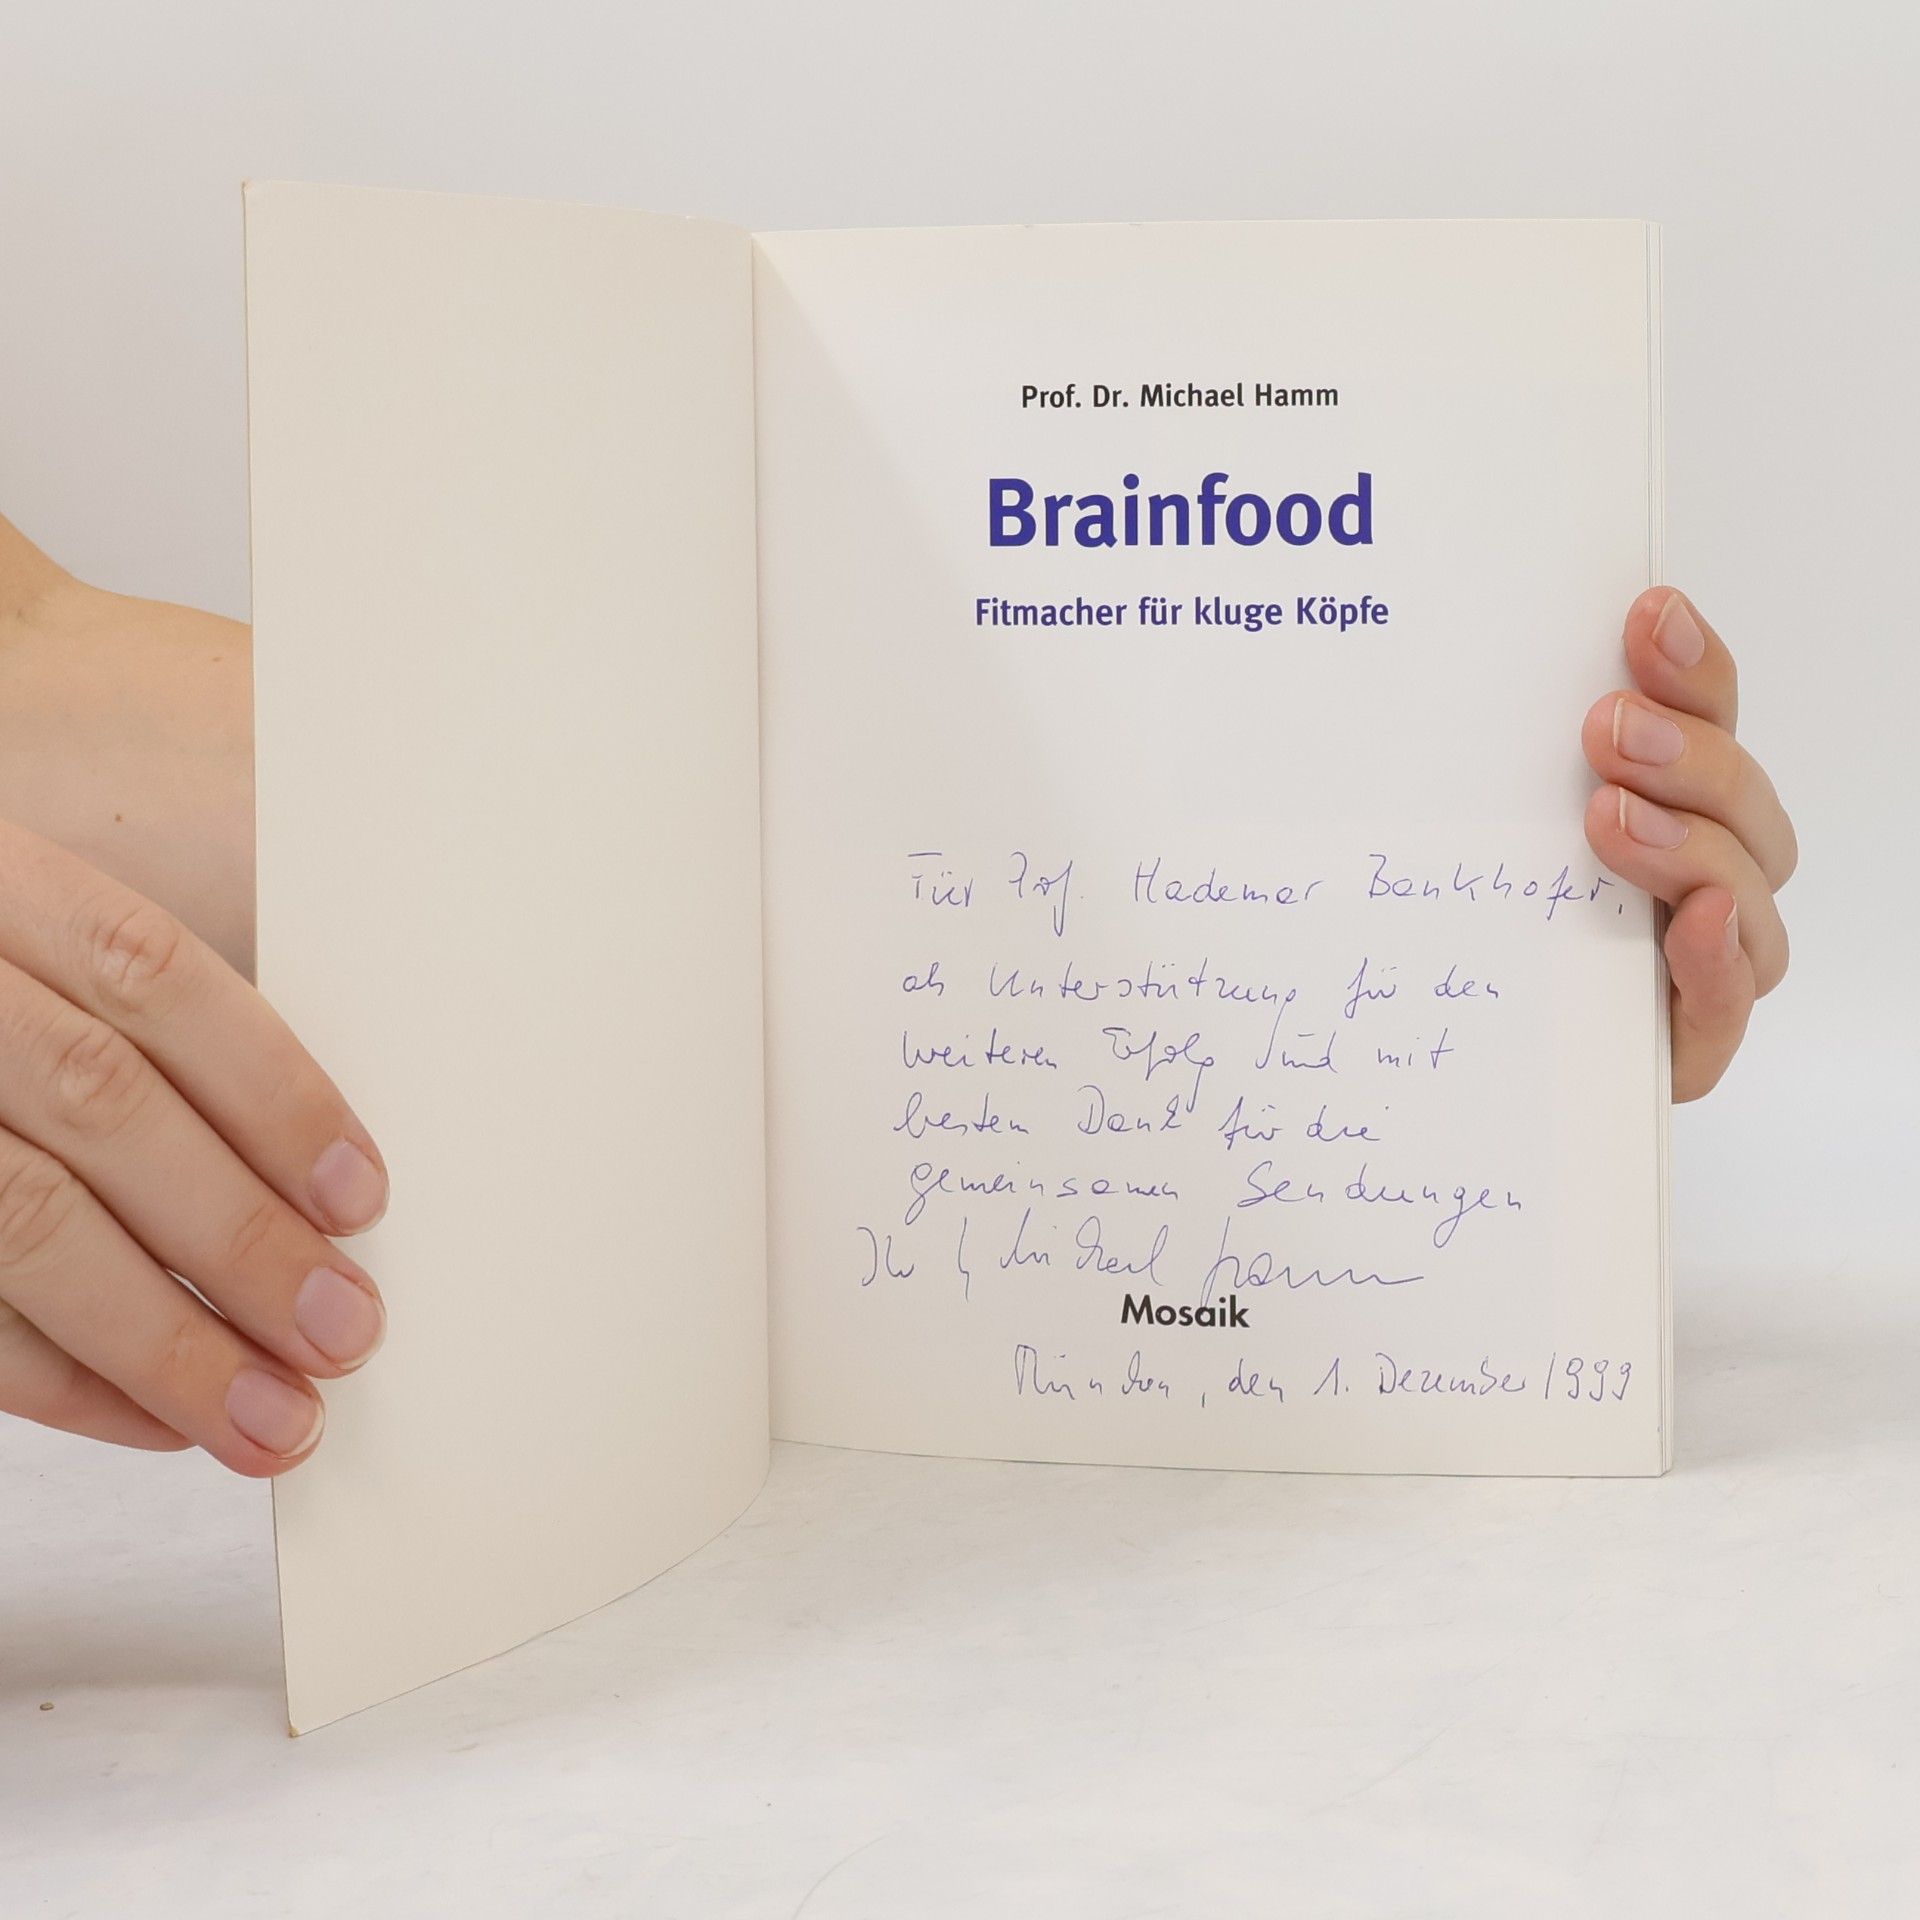 Prof. Dr. Michael Hamm
Brainfood
Fitmacher für kluge Köpfe
Für Prof. Hademar Bankhofer,
als Unterstützung für den
weiteren Erfolg und mit
bestem Dank für die
gemeinsamen Sendungen
Ihr Michael Hamm
Mosaik
München, den 1. Dezember 1999